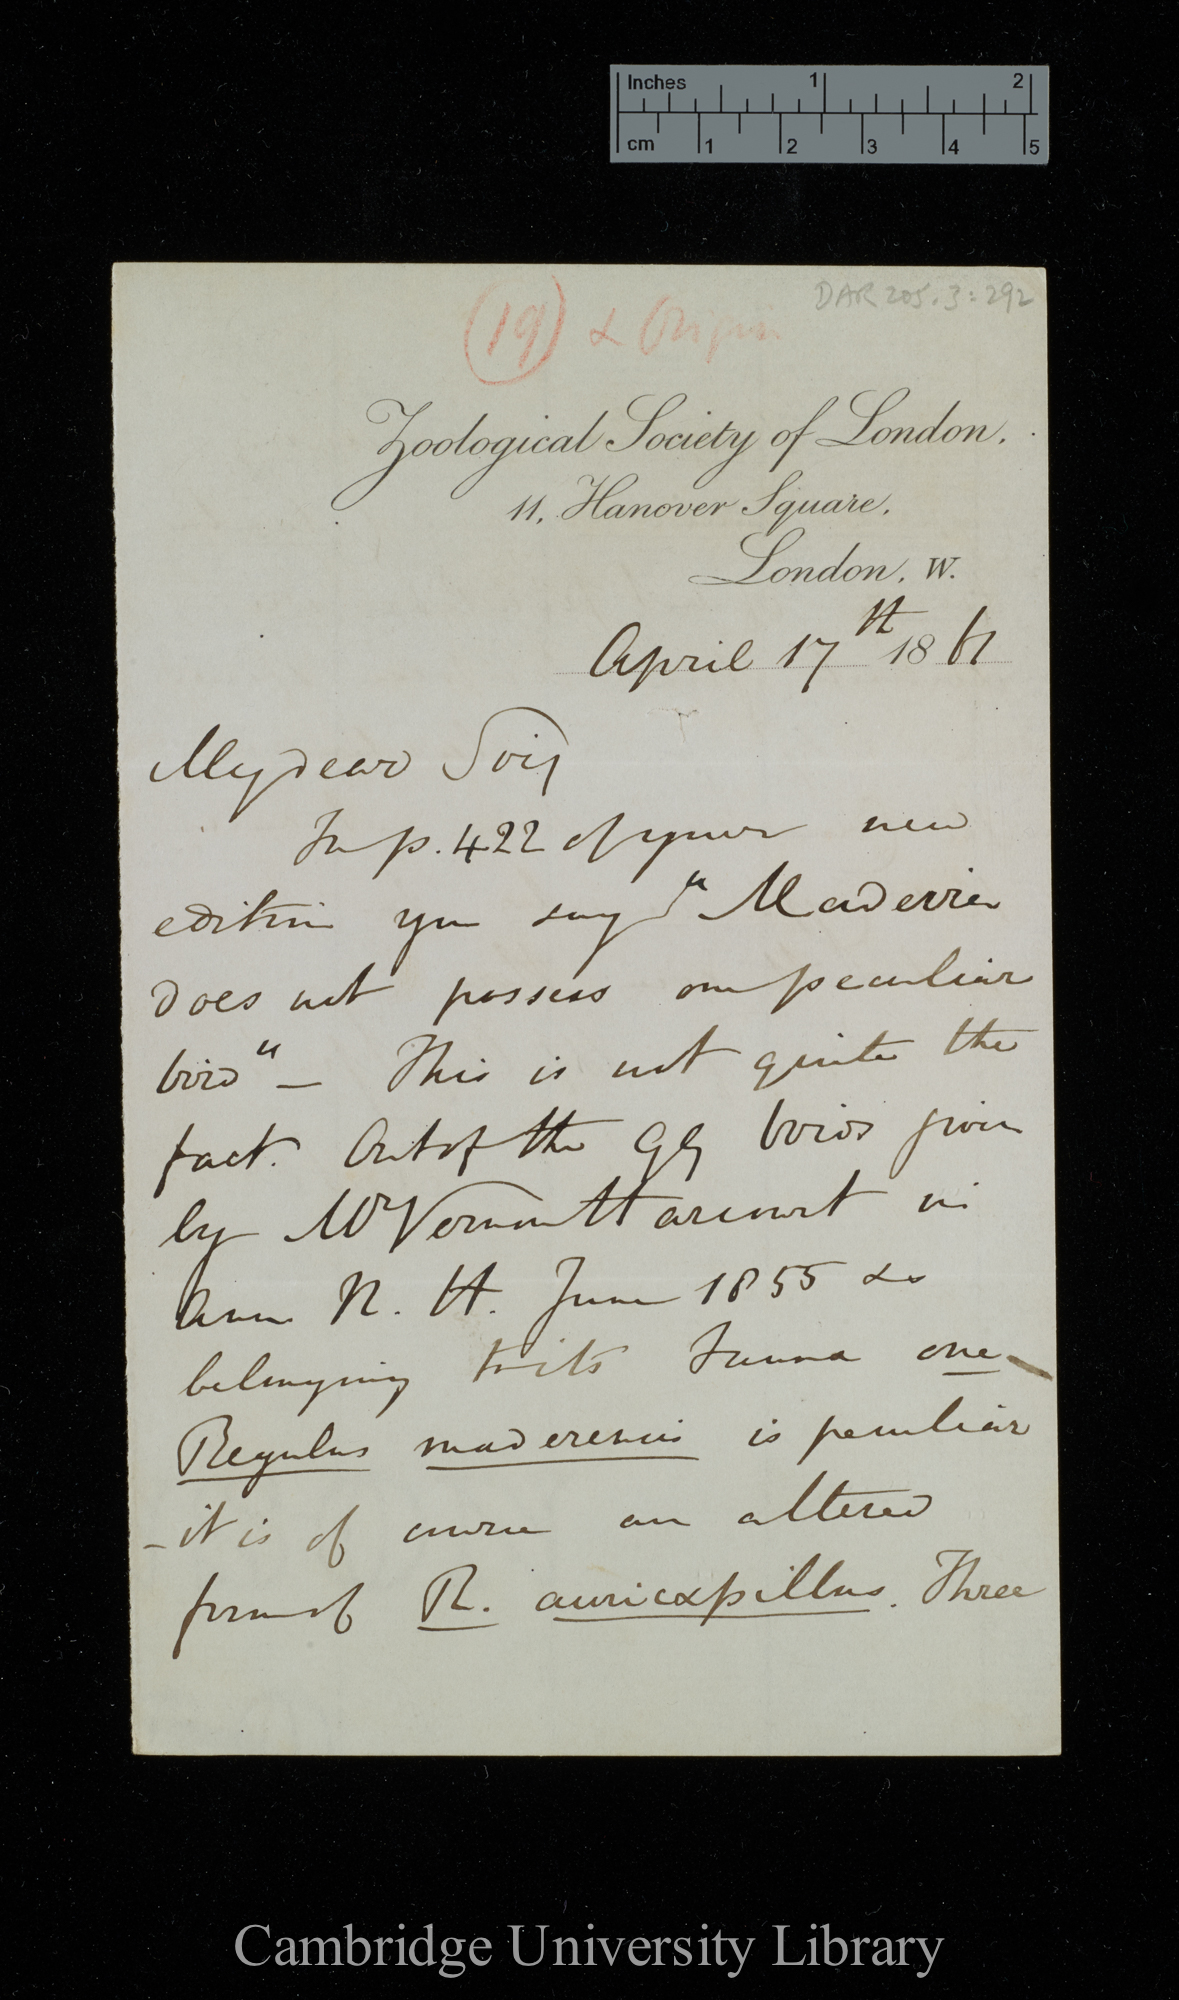 Inches 1 2
cm 1 2 3 4 5
DAR 205.3:292
(19) & Origin
Zoological Society of London.
11, Hanover Square,
London, W.
April 17th 1861
My dear Sir,
In p. 422 of your new
edition you say "Maderia
does not possess one peculiar
bird" — This is not quite the
fact. Out of the 99 birds given
by Mr Vernon Harcourt in
Ann N. H. June 1855 as
belonging to its Fauna one
Regulus maderensis is peculiar
— it is of course an altered
form of R. auricapillus. Three
Cambridge University Library